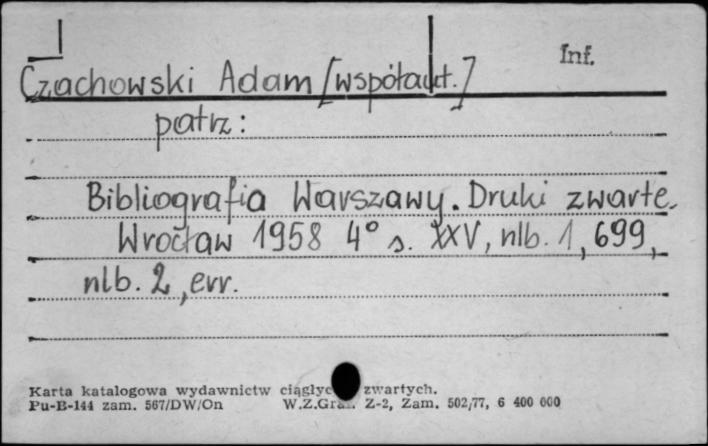 Inf.
Czachowski Adam [współaut.]
patrz:
Bibliografia Warszawy. Druki zwarte.
Wrocław 1958 4° s. XXV, nlb. 1, 699,
nlb. 2, err.
Karta katalogowa wydawnictw zwartych.
Pu-B-144 zam. 567/DW/On W.Z.Graf. Z-2, Zam. 502/77, 6 400 000